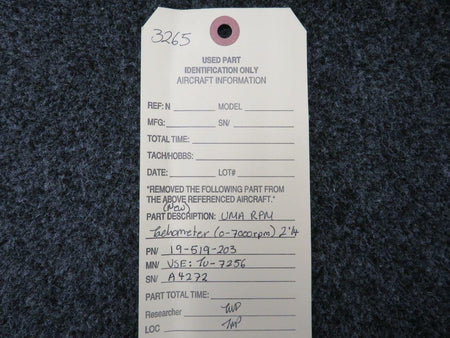 3265
USED PART
IDENTIFICATION ONLY
AIRCRAFT INFORMATION
REF: N MODEL
MFG: SN/
TOTAL TIME:
TACH/HOBBS:
DATE: LOT#
"REMOVED THE FOLLOWING PART FROM
THE ABOVE REFERENCED AIRCRAFT."
(New)
PART DESCRIPTION: UMA RPM
Tachometer (0-7000rpm) 2"1/4
PN/ 19-519-203
MN/ VSE: TU-7256
SN/ A4272
PART TOTAL TIME:
Researcher
LOC